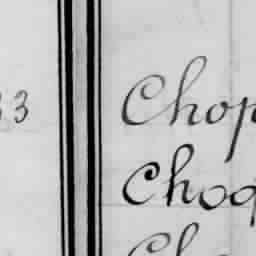 33 Chop
Choq